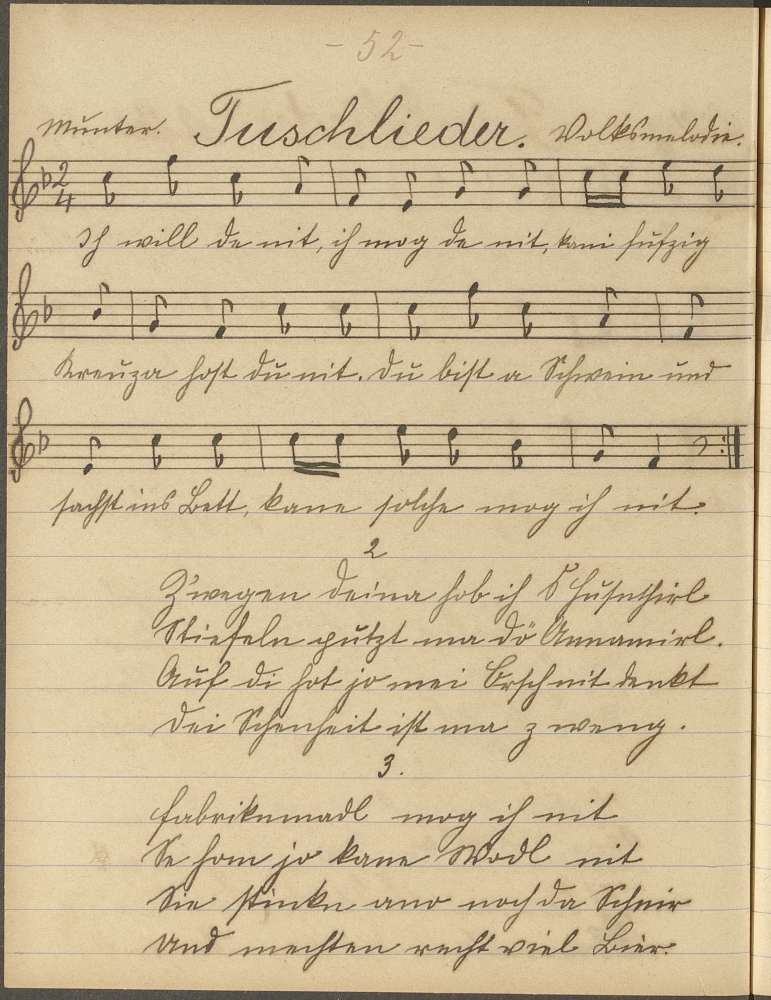 - 52 -
Munter. Tuschlieder. Volksmelodie.
2
4
Ich will de nit, ich mog de nit, kani fufzig
Kreuza host du nit. du bist a Schwein und
sachst ins Bett, kane solche mog ich nit.
2
Z'wegen deina hob ich
Stiefeln putzt ma dö Annamirl.
Auf di hot jo mei Orsch nit denkt
Dei Schenheit ist ma z weng.
3.
Fabriknmadl mog ich nit
Se hom jo kane Wodl nit
Sie stinkn ano noch da Schmir
und mechten recht viel Bier.